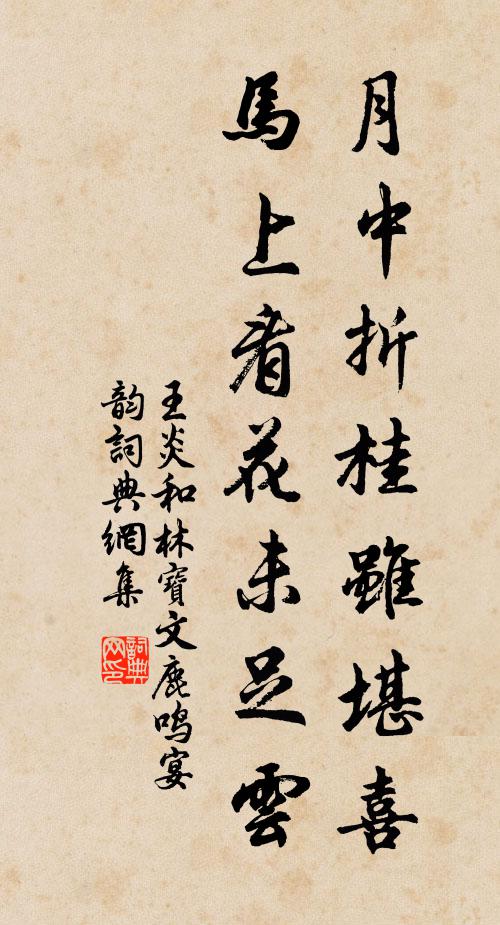 月中折桂雖堪喜
馬上看花未足雲
王炎和林寶文鹿鳴宴
韵詞典網集
詞典网印